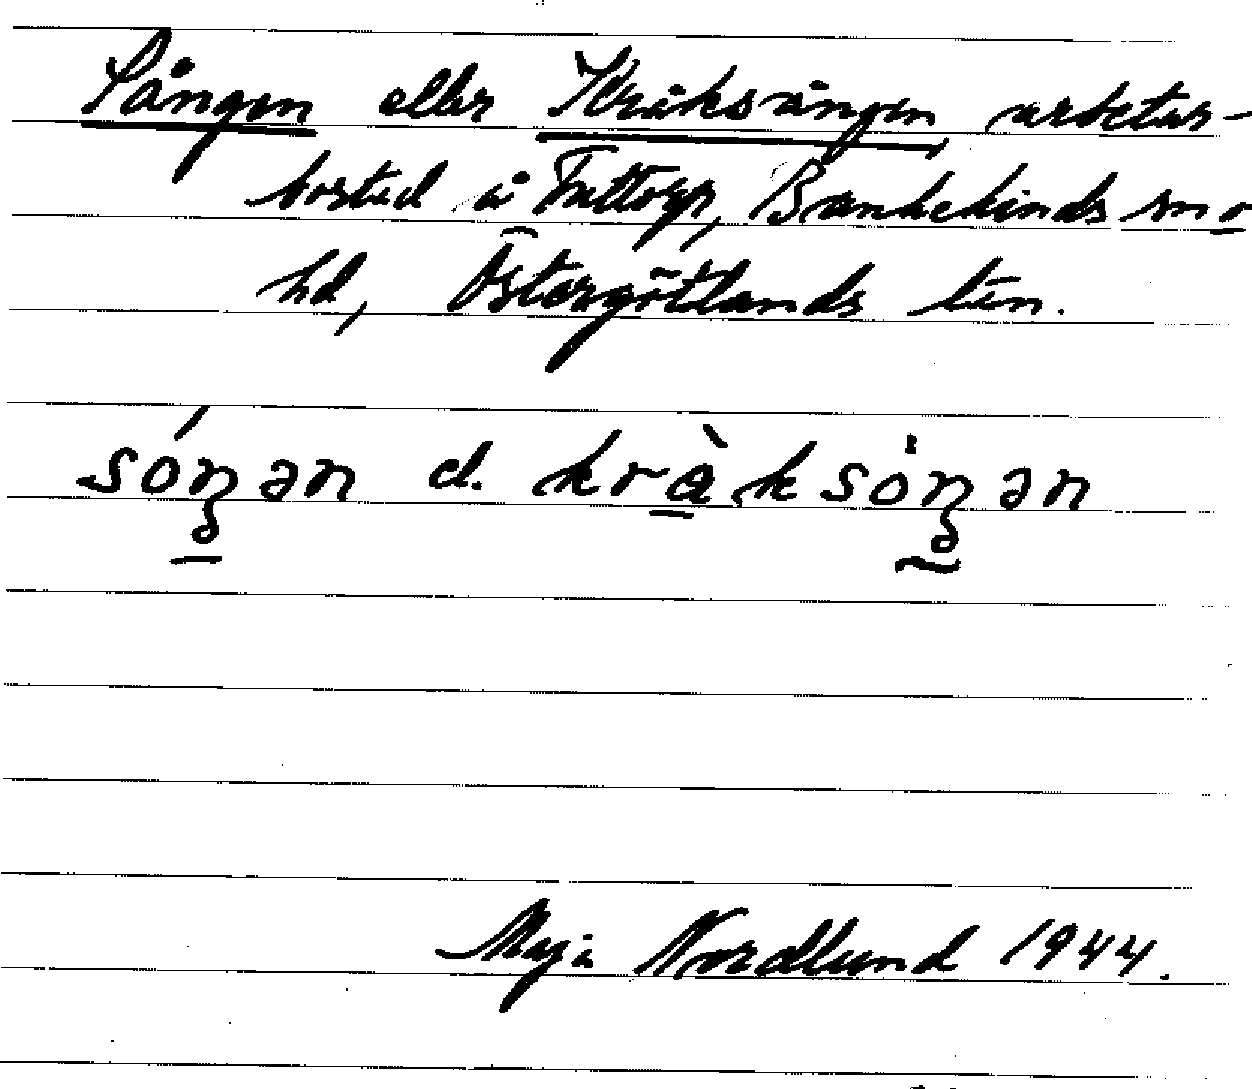 Sången eller Kråksången, arbetar-
bostad å Fettorp, Bankekinds sn o
hd, Östergötlands län.
sóŋən el. kràksòŋən
Maja Nordlund 1944.